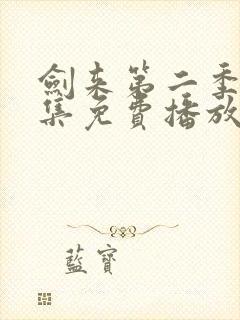 劍来第二季
集免費播放
藍寶